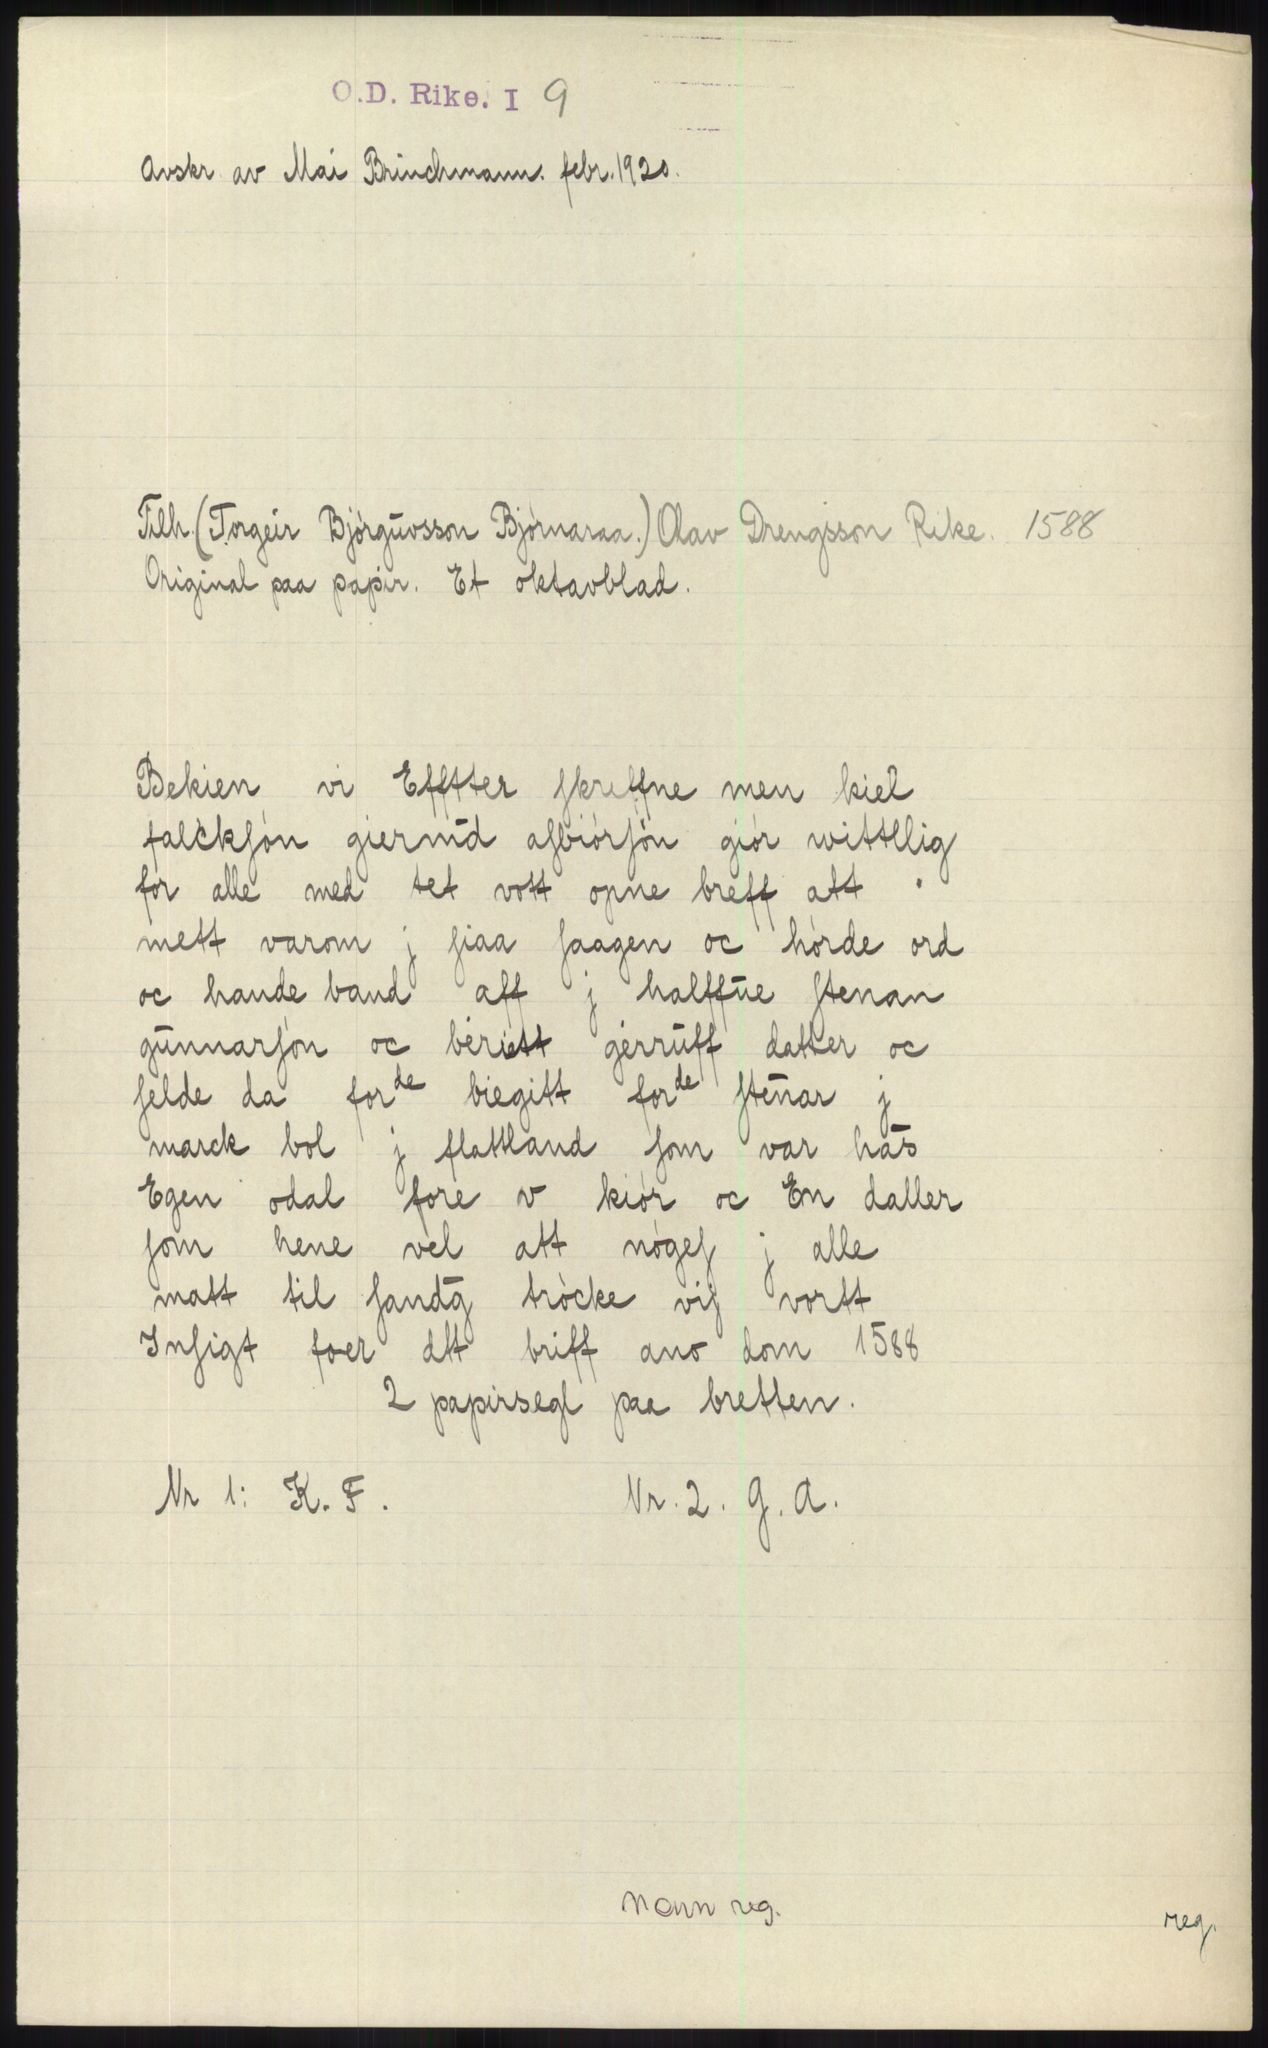 O.D. Rike. I 9
Avskr av Mai Brinchmann. febr. 1920.
Tilh. (Torgeir Bjórguvsson Bjórnaraa.) Olav Drengsson Rike. 1588
Original paa papir. Et oktavblad.
Bekien vi Efftter skreffne men kiel
falcksón gierŭid asbiórsón giór wittllig
fór alle med tet vott opne breff att
mett varom j siaa saagen oc hórde ord
oc hande band aff j halffŭe stenan
gŭnnarsón oc bériett gérrŭff datter oc
selde da forde biegitt forde stēnar j
marck bol j flattland som var hās
Egen odal fore v kiór oc En daller
som hene vel att nóges j alle
matt til sandḡ trócke vis vortt
Insigt foer dtt briff ano dom 1588
2 papirsegl paa bretten.
Nr 1: K. F. Nr. 2. G. A.
Navn reg.
reg.